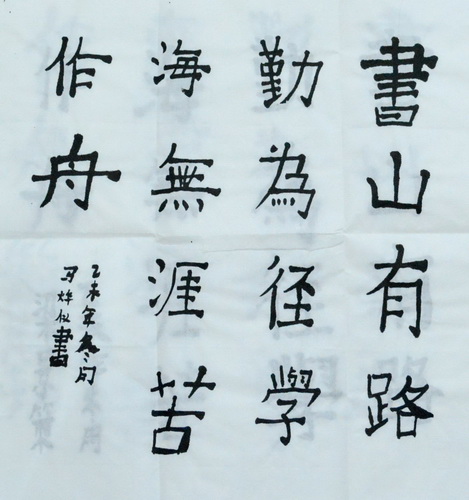 書山有路
勤為径學
海無涯苦
作舟
乙未年冬月
書